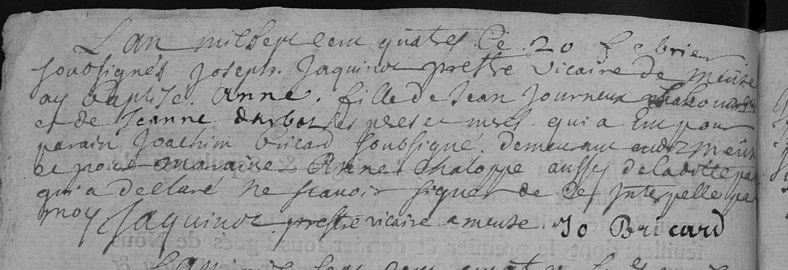 L'an mil sept cent quatre ce 20 febvrier
soubsignés Joseph Jaquinot prestre vicaire de meuse
ay baptisé Anne fille de Jean Journeux
et de Jeanne darbot ses pere et mere qui a eu pour
parain Joachim bricard soubsigné demeurant audit meuse
et pour maraine Anne chaloppe aussy de ladite pa
qui a declaré ne scavoir signer de ce interpellé par
moy Jaquinot prestre vicaire a meuse. Jo Bricard
L'an mil sept cent quatre